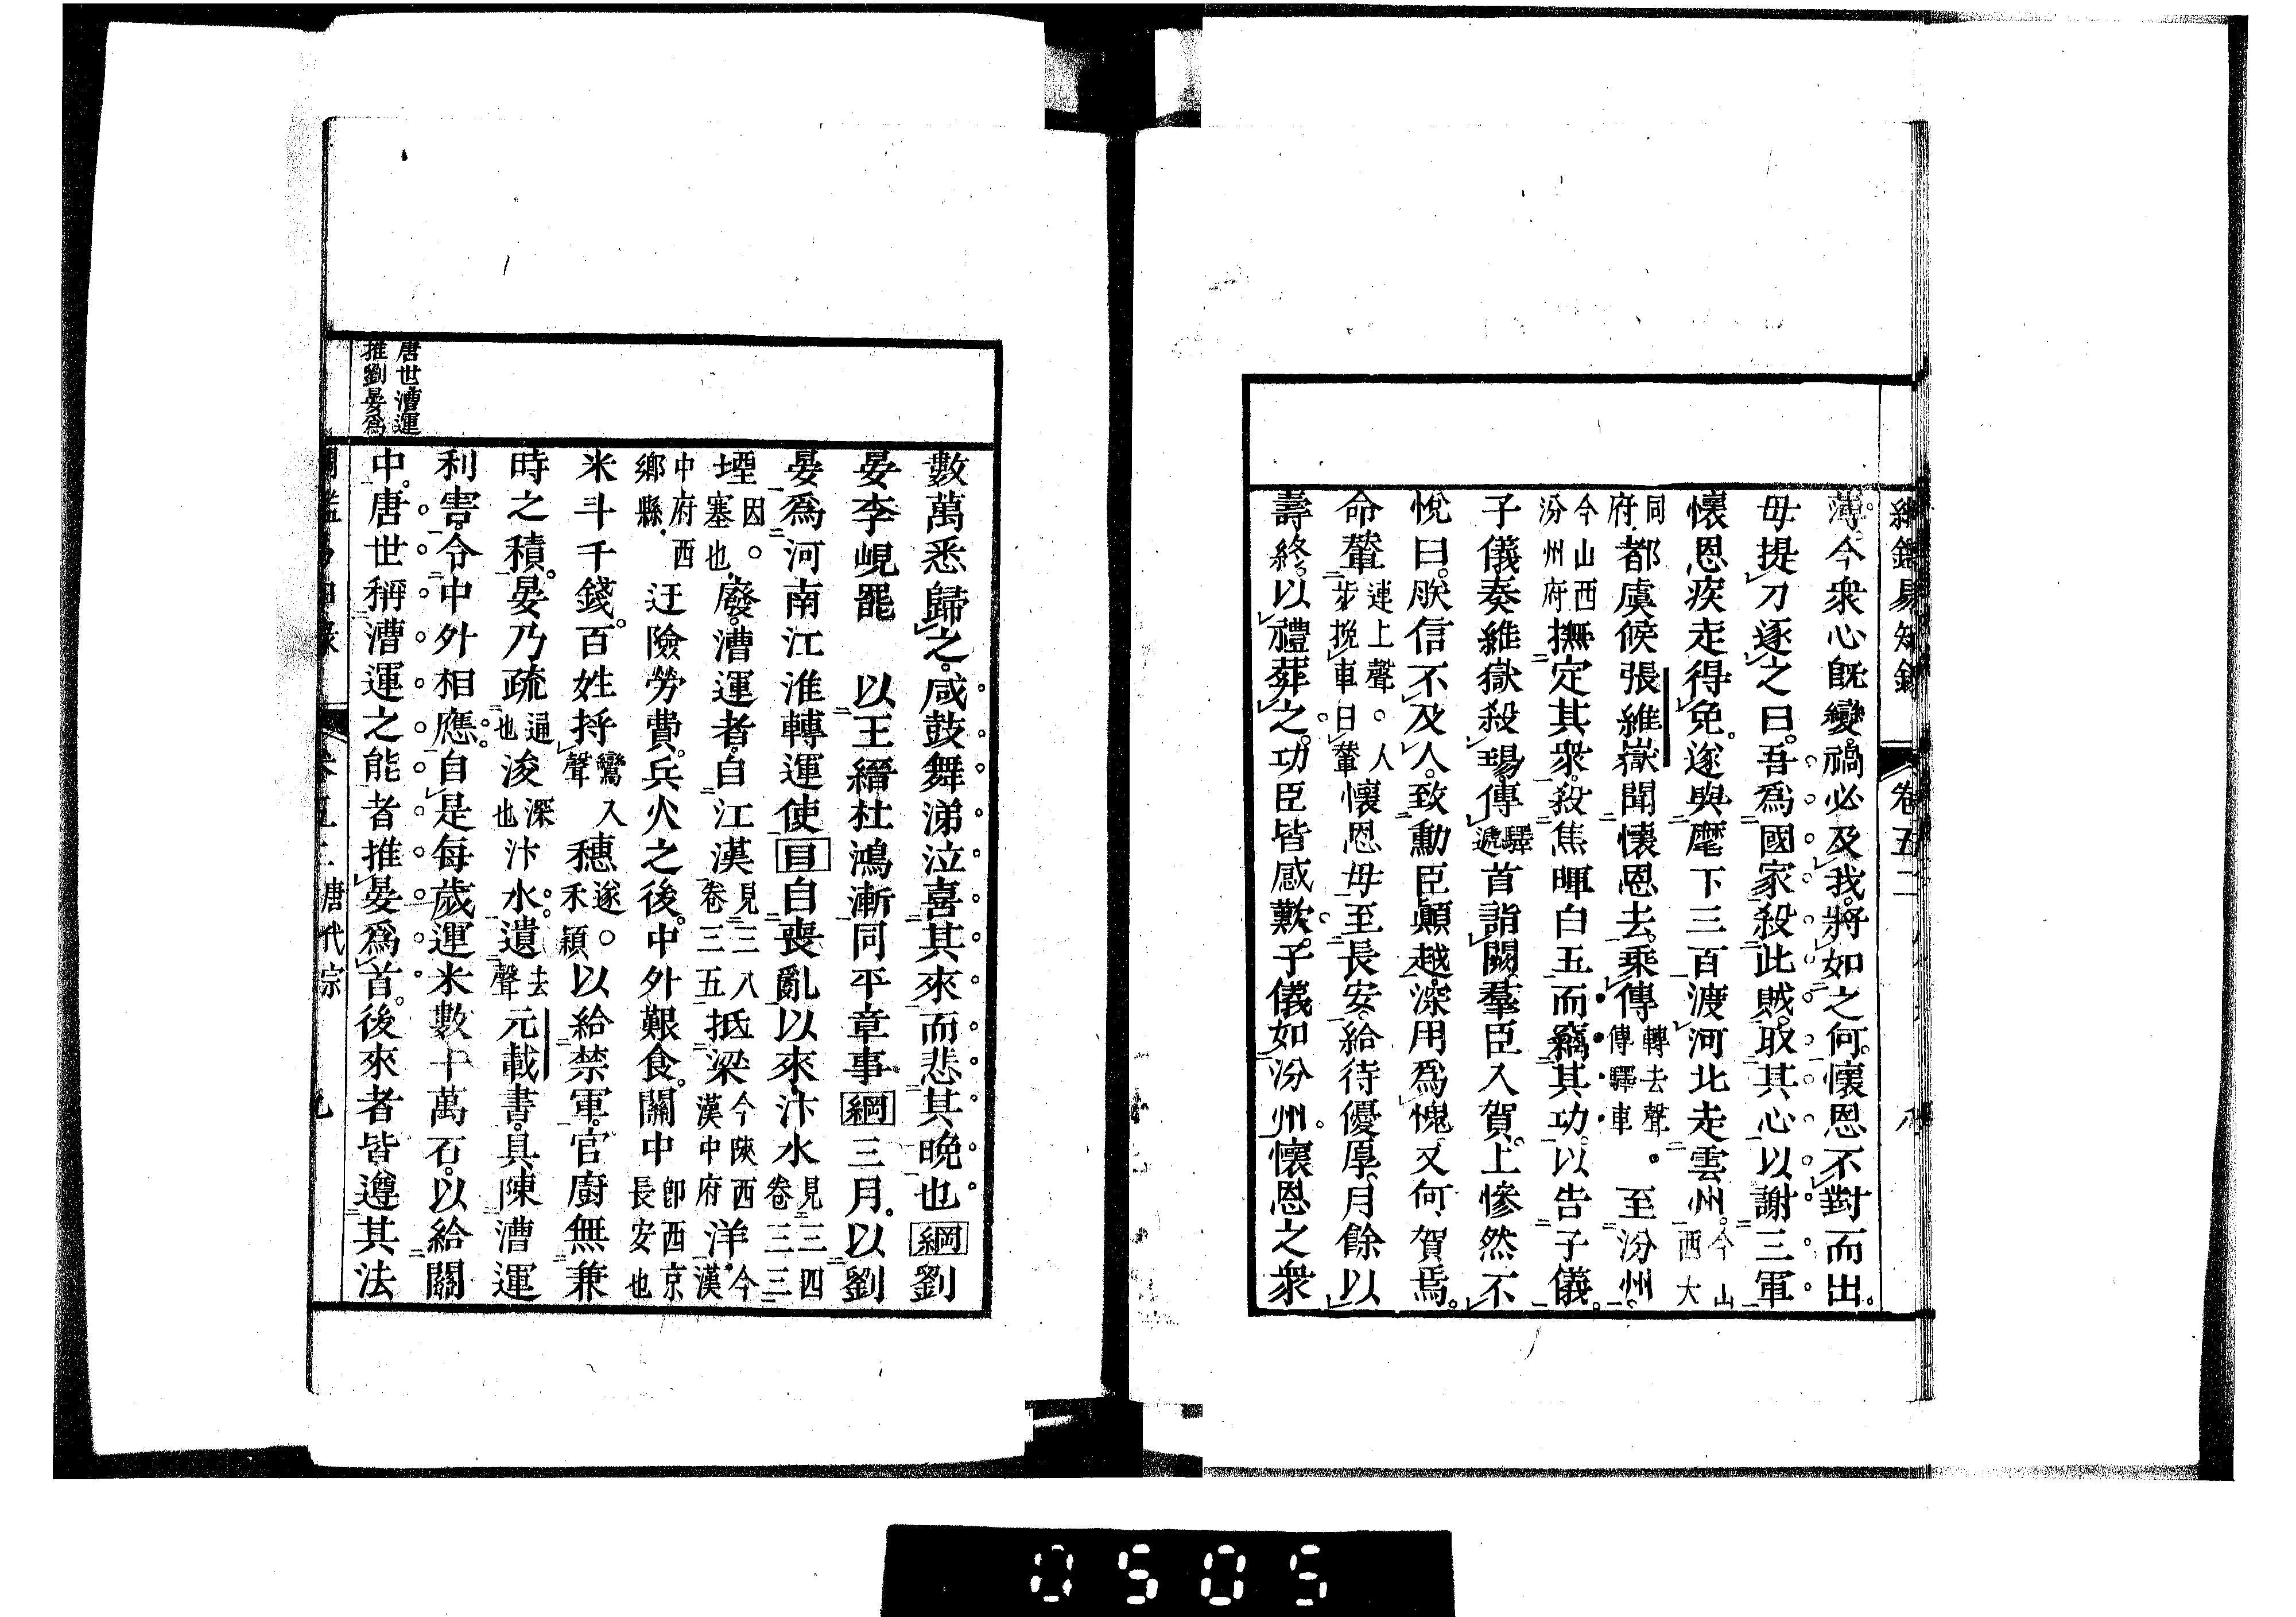 綱鑑易知錄 卷五二 八
薄。今衆心旣變。禍必及我。將如之何。懷恩不對而出。
母提刀逐之曰。吾爲國家殺此賊。取其心以謝三軍
懷恩疾走得免。遂與麾下三百渡河北走雲州。今山西大
同府.都虞候張維嶽聞懷恩去。乘傳轉去聲傳驛車。至汾州。
今山西汾州府撫定其衆。殺焦暉白玉而竊其功。以告子儀。
子儀奏維嶽殺瑒。傳驛遞首詣闕。羣臣入賀。上慘然不
悅曰。朕信不及人。致勳臣顚越。深用爲愧。又何賀焉。
命輦連上聲。人步挽車曰輦懷恩母至長安。給待優厚。月餘以
壽終。以禮葬之。功臣皆感歎。子儀如汾州。懷恩之衆
數萬悉歸之。咸鼓舞涕泣喜其來而悲其晚也綱劉
晏李峴罷 以王縉杜鴻漸同平章事綱三月。以劉
晏爲河南江淮轉運使目自喪亂以來汴水見三四卷三三
堙因。塞也.廢。漕運者。自江漢見三八卷三五抵梁今陝西漢中府洋今漢
中府西鄉縣.迂險勞費。兵火之後。中外艱食。關中卽西京長安也
米斗千錢。百姓捋鸞入聲穗遂。禾穎以給禁軍。官廚無兼
時之積。晏乃疏通也浚深也汴水。遺去聲元載書。具陳漕運
利害。令中外相應。自是每歲運米數十萬石。以給關
中。唐世稱漕運之能者推晏爲首。後來者皆遵其法
唐世漕運
推劉晏爲
唐代宗
0505